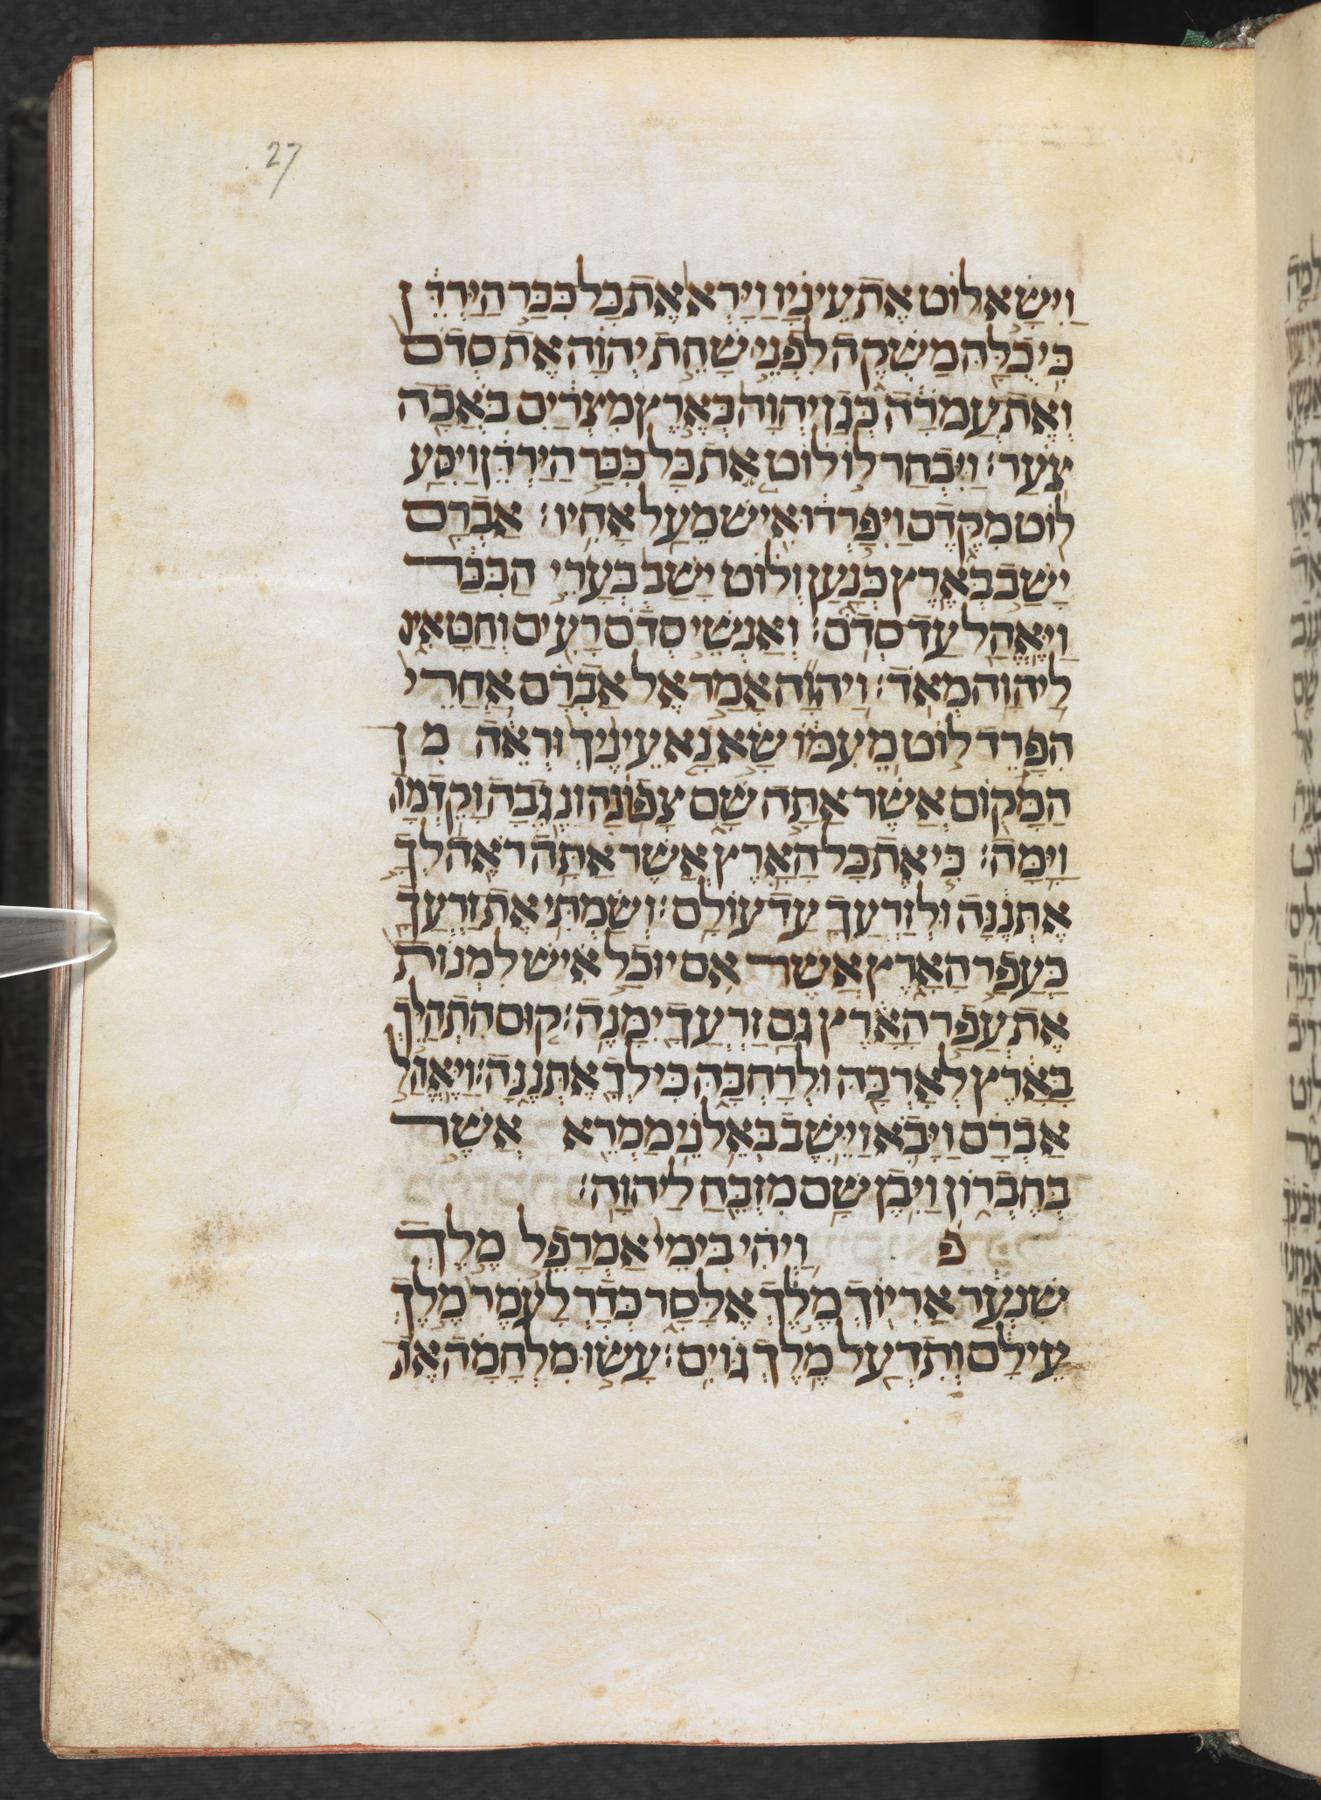 27
וַיִּשָּׂא לוֹט אֶת עֵינָיו וַיַּרְא אֶת כָּל כִּכַּר הַיַּרְדֵּן
כִּי כֻלָּהּ מַשְׁקֶה לִפְנֵי שַׁחֵת יְהוָה אֶת סְדֹם
וְאֶת עֲמֹרָה כְּגַן יְהוָה כְּאֶרֶץ מִצְרַיִם בֹּאֲכָה
צֹעַר׃ וַיִּבְחַר לוֹ לוֹט אֵת כָּל כִּכַּר הַיַּרְדֵּן וַיִּסַּע
לוֹט מִקֶּדֶם וַיִּפָּרְדוּ אִישׁ מֵעַל אָחִיו׃ אַבְרָם
יָשַׁב בְּאֶרֶץ כְּנָעַן וְלוֹט יָשַׁב בְּעָרֵי הַכִּכָּר
וַיֶּאֱהַל עַד סְדֹם׃ וְאַנְשֵׁי סְדֹם רָעִים וְחַטָּאִים
לַיהוָה מְאֹד׃ וַיהוָה אָמַר אֶל אַבְרָם אַחֲרֵי
הִפָּרֶד לוֹט מֵעִמּוֹ שָׂא נָא עֵינֶיךָ וּרְאֵה מִן
הַמָּקוֹם אֲשֶׁר אַתָּה שָׁם צָפֹנָה וָנֶגְבָּה וָקֵדְמָה
וָיָמָּה׃ כִּי אֶת כָּל הָאָרֶץ אֲשֶׁר אַתָּה רֹאֶה לְךָ
אֶתְּנֶנָּה וּלְזַרְעֲךָ עַד עוֹלָם׃ וְשַׂמְתִּי אֶת זַרְעֲךָ
כַּעֲפַר הָאָרֶץ אֲשֶׁר אִם יוּכַל אִישׁ לִמְנוֹת
אֶת עֲפַר הָאָרֶץ גַּם זַרְעֲךָ יִמָּנֶה׃ קוּם הִתְהַלֵּךְ
בָּאָרֶץ לְאָרְכָּהּ וּלְרָחְבָּהּ כִּי לְךָ אֶתְּנֶנָּה׃ וַיֶּאֱהַל
אַבְרָם וַיָּבֹא וַיֵּשֶׁב בְּאֵלֹנֵי מַמְרֵא אֲשֶׁר
בְּחֶבְרוֹן וַיִּבֶן שָׁם מִזְבֵּחַ לַיהוָה׃
פ וַיְהִי בִּימֵי אַמְרָפֶל מֶלֶךְ
שִׁנְעָר אַרְיוֹךְ מֶלֶךְ אֶלָּסָר כְּדָרְלָעֹמֶר מֶלֶךְ
עֵילָם וְתִדְעָל מֶלֶךְ גּוֹיִם׃ עָשׂוּ מִלְחָמָה אֶת